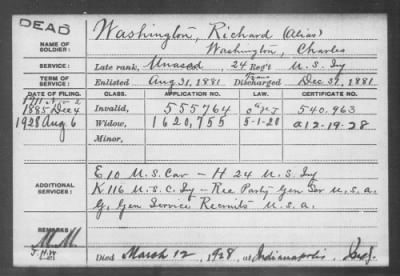 DEAD
Washington, Richard (Alias)
NAME OF SOLDIER:
Washington, Charles
SERVICE: Late rank, Unasgd, 24 Reg't U.S. Inf
TERM OF SERVICE: Enlisted Aug. 31, 1881 Discharged Dec 1881
DATE OF FILING. CLASS. APPLICATION NO. LAW. CERTIFICATE NO.
1885 Dec 4 Invalid, 555764 540.963
1928 Aug 6 Widow, 1620,755 5-1-20 a12-19-28
Minor,
ADDITIONAL SERVICES:
E 10 U.S. Cav - H 24 U.S. Inf
K 116 U.S.C. Inf - Rec Party Gen Ser U.S.A.
G. Gen Service Recruits U.S.A.
REMARKS
M.M.
J.H.W.
Died March 12, 1928, at Indianapolis, Ind.